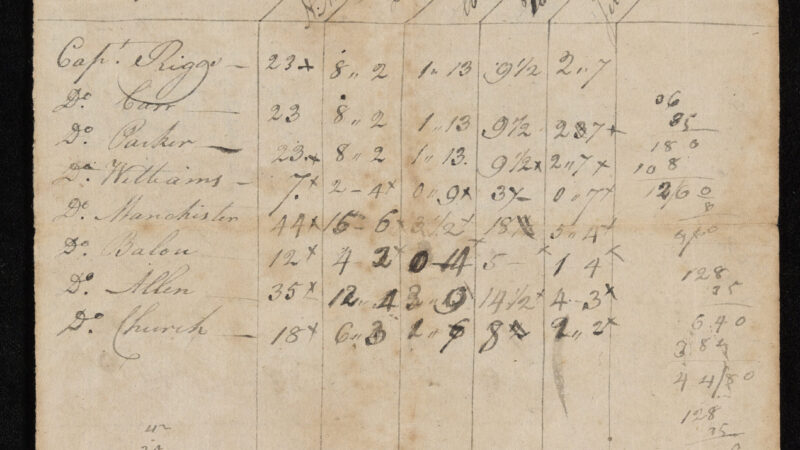 Capt Riggs — 23 x 8 ,, 2 1 ,, 13 9 1/2 2 ,, 7
Do Carr — 23 8 ,, 2 1 ,, 13 9 1/2 2 37 x
Do Parker — 23 x 8 ,, 2 1 ,, 13 9 1/2 x 2 ,, 7 x
Do Williams — 7 x 2 - 4 x 0 ,, 9 x 3 x - 0 ,, 7 x
Do Manchister 44 x 15 - 6 x 3 1/2 x 18 x 5 ,, 4 x
Do Balou 12 x 4 2 0 - 4 5 - 1 4 x
Do Allen — 35 x 12 ,, 4 2 ,, 9 14 1/2 x 4 - 3 x
Do Church — 18 x 6 ,, 3 8 2 ,, 2 x
06
35
180
108
128
35
640
384
44/80
128
35